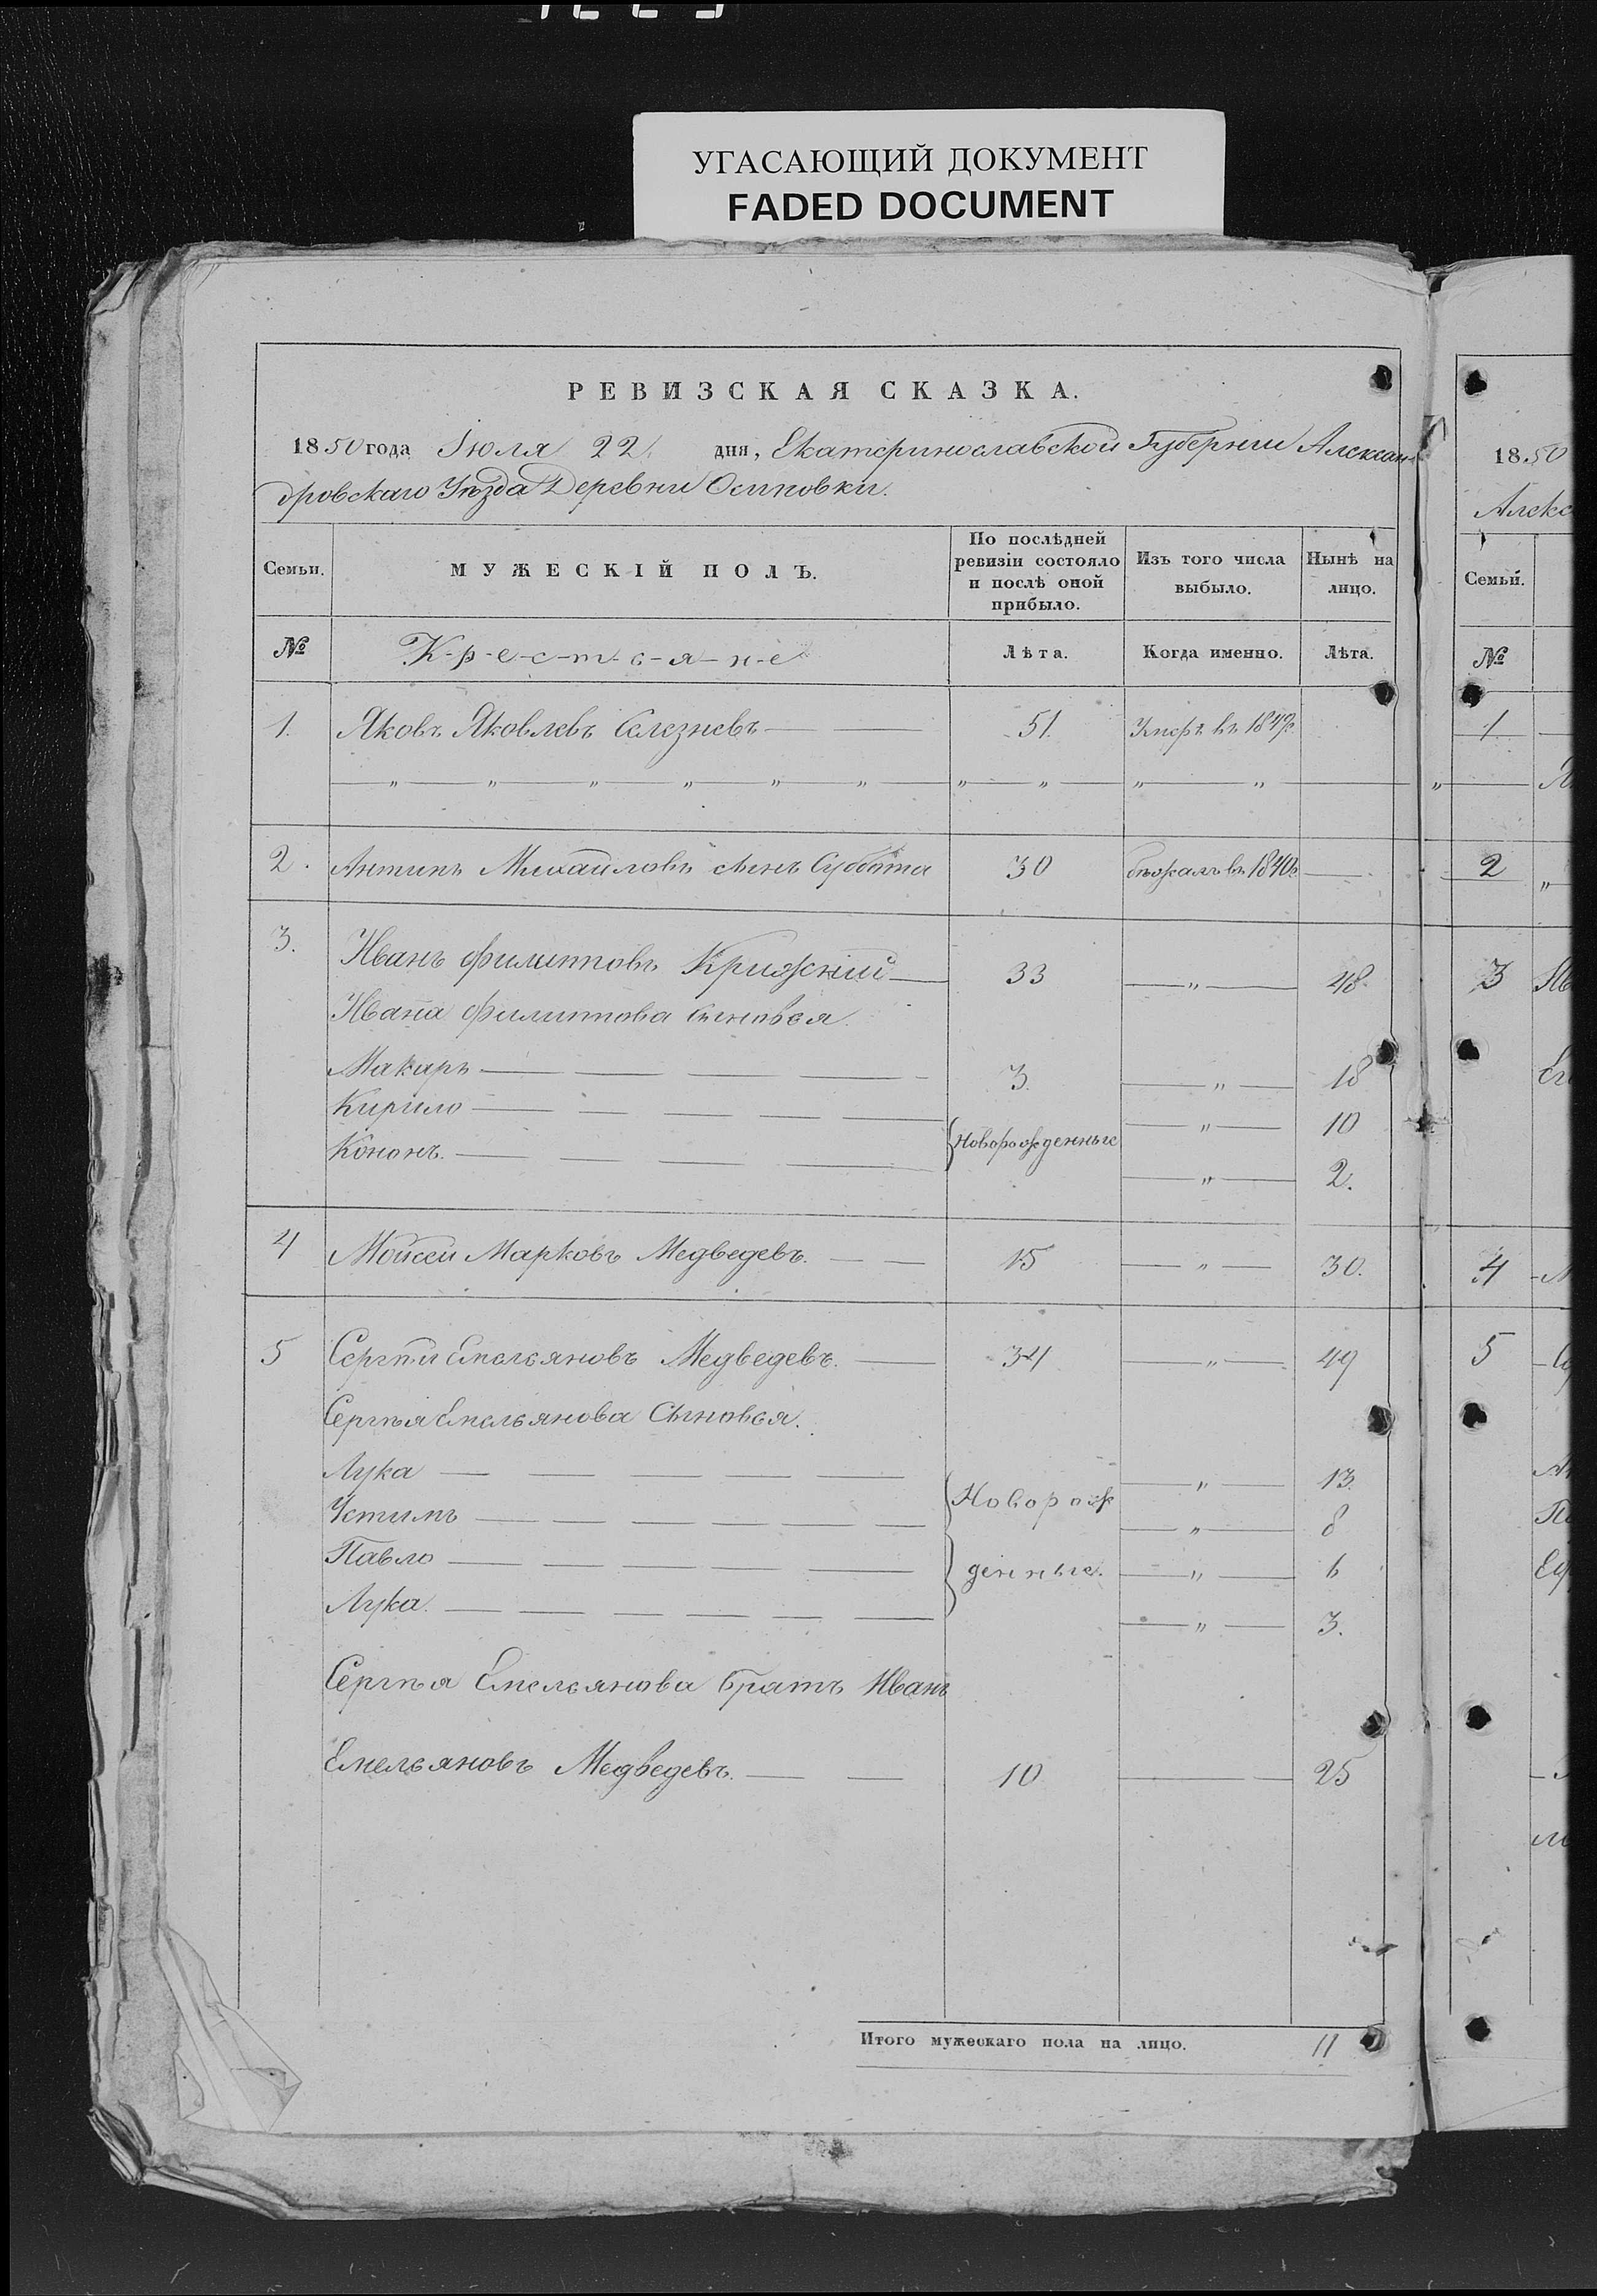 УГАСАЮЩИЙ ДОКУМЕНТ
FADED DOCUMENT
РЕВИЗСКАЯ СКАЗКА.
1850 года Іюля 22 дня, Екатеринославской Губерніи Алексан-
дровскаго Уѣзда Деревни Осиповки.
Семьи. МУЖЕСКІЙ ПОЛЪ. По послѣдней ревизіи состояло и послѣ оной прибыло. Изъ того числа выбыло. Нынѣ на лицо.
№ К-р-е-с-т-ь-я-н-е Лѣта. Когда именно. Лѣта.
1. Яковъ Яковлевъ Селезневъ 51. Умеръ въ 1847.
2. Антипъ Михайловъ сынъ Субота 30 бѣжалъ въ 1840.
3. Иванъ Филипповъ Крижній 33 " 48.
Ивана Филиппова сыновья.
Макаръ 3. " 18
Кирило " 10
Кононъ. Новорожденные " 2.
4 Мойсей Марковъ Медведевъ. 15 " 30.
5 Сергѣй Емельяновъ Медведевъ. 34 " 49
Сергѣя Емельянова Сыновья.
Лука Новорож " 13.
Устимъ " 8
Павло денные. " 6
Лука. " 3.
Сергѣя Емельянова братъ Иванъ
Емельяновъ Медведевъ. 10 25
Итого мужескаго пола на лицо. 11
1850
Алекс
Семьи.
№
1
2
3
4
5